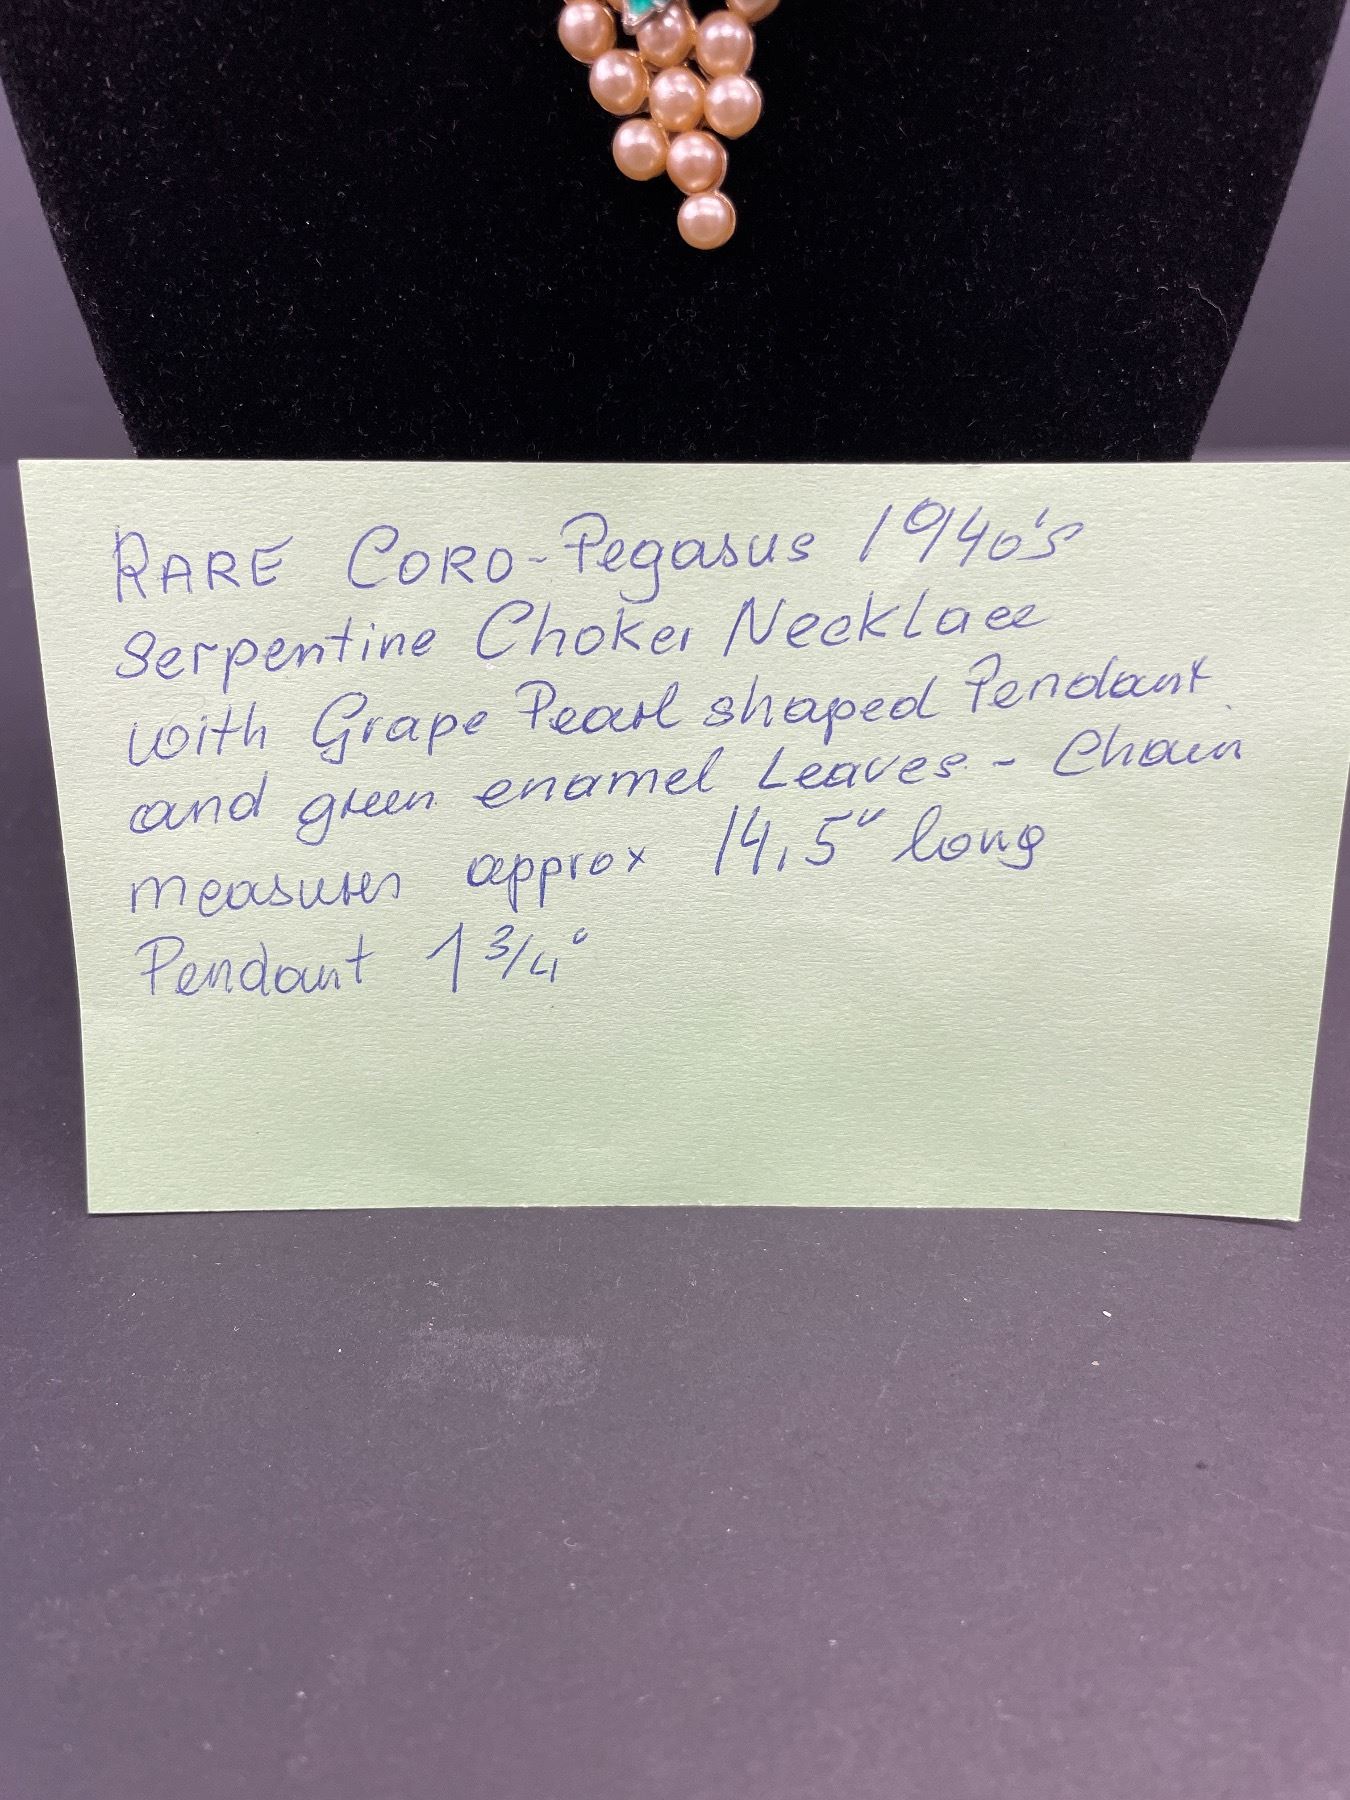 RARE CORO-Pegasus 1940's
Serpentine Choker Necklace
with Grape Pearl shaped Pendant
and green enamel Leaves - Chain
measures approx 14,5" long
Pendant 1 3/4"